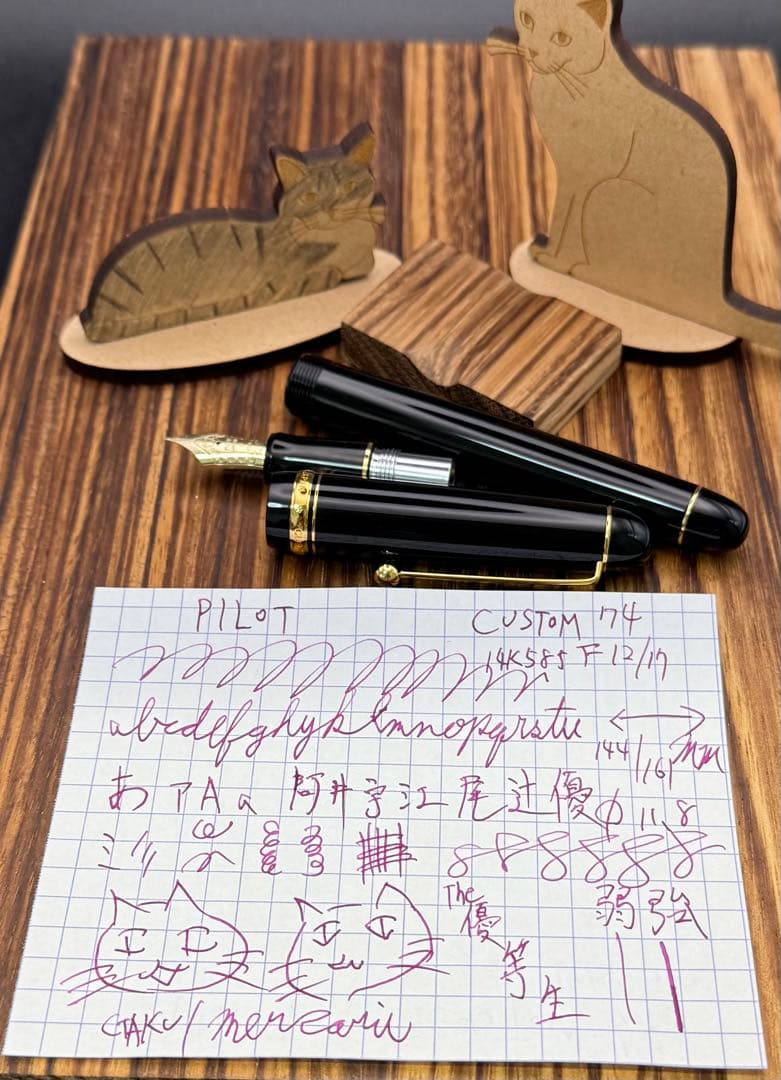 PILOT CUSTOM 74
14K585 F 12/17
abcdefghyklmnopqrstu
144/161 mm
あアAa 阿井宇江尾辻優 φ11.8
The 優等生
弱 強
OTAKU/mercari